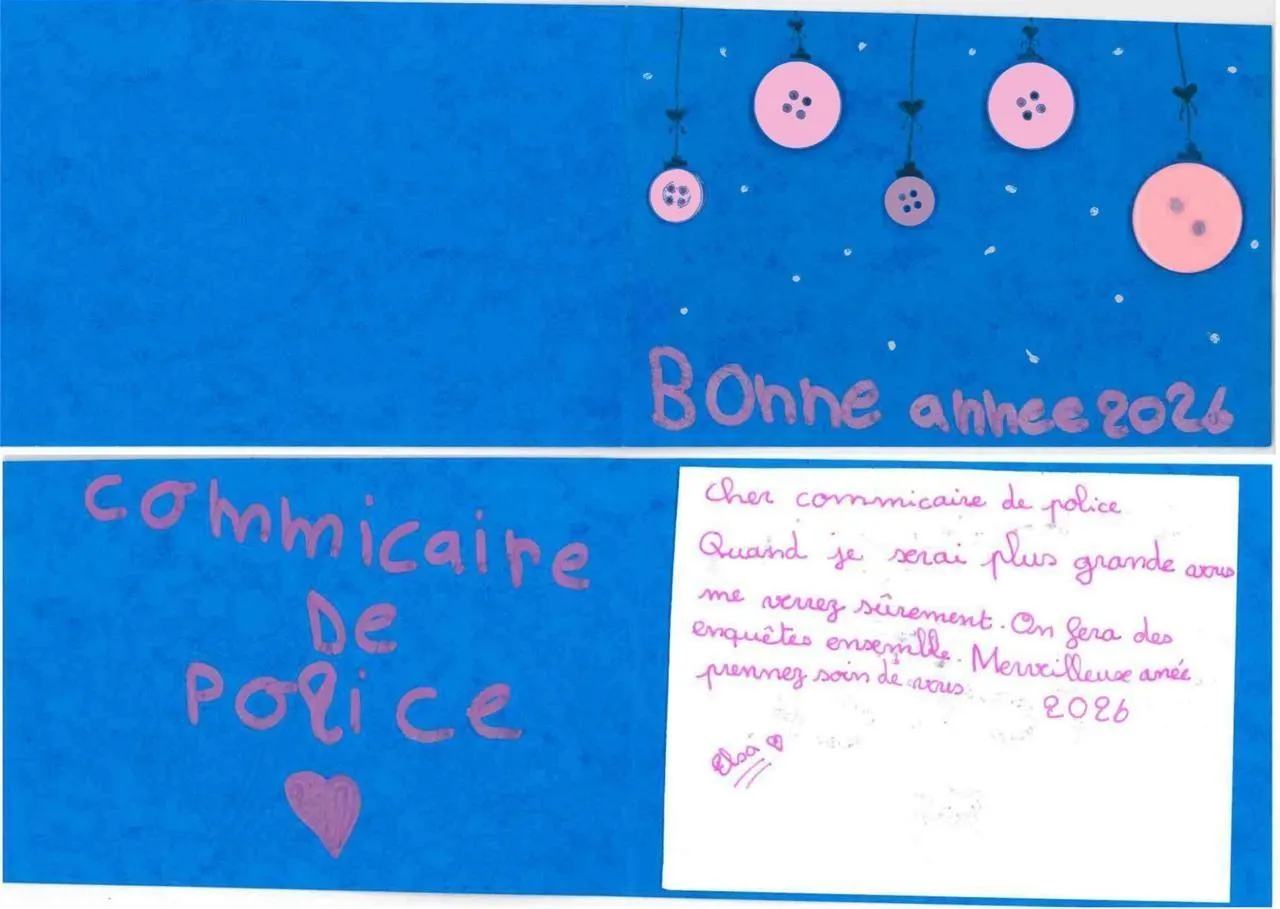 Bonne annee 2026
commicaire
De
Police
Cher commicaire de police
Quand je serai plus grande vous
me verrez sûrement. On fera des
enquêtes ensemble. Merveilleuse anéé
prennez soin de vous 2026
Elsa